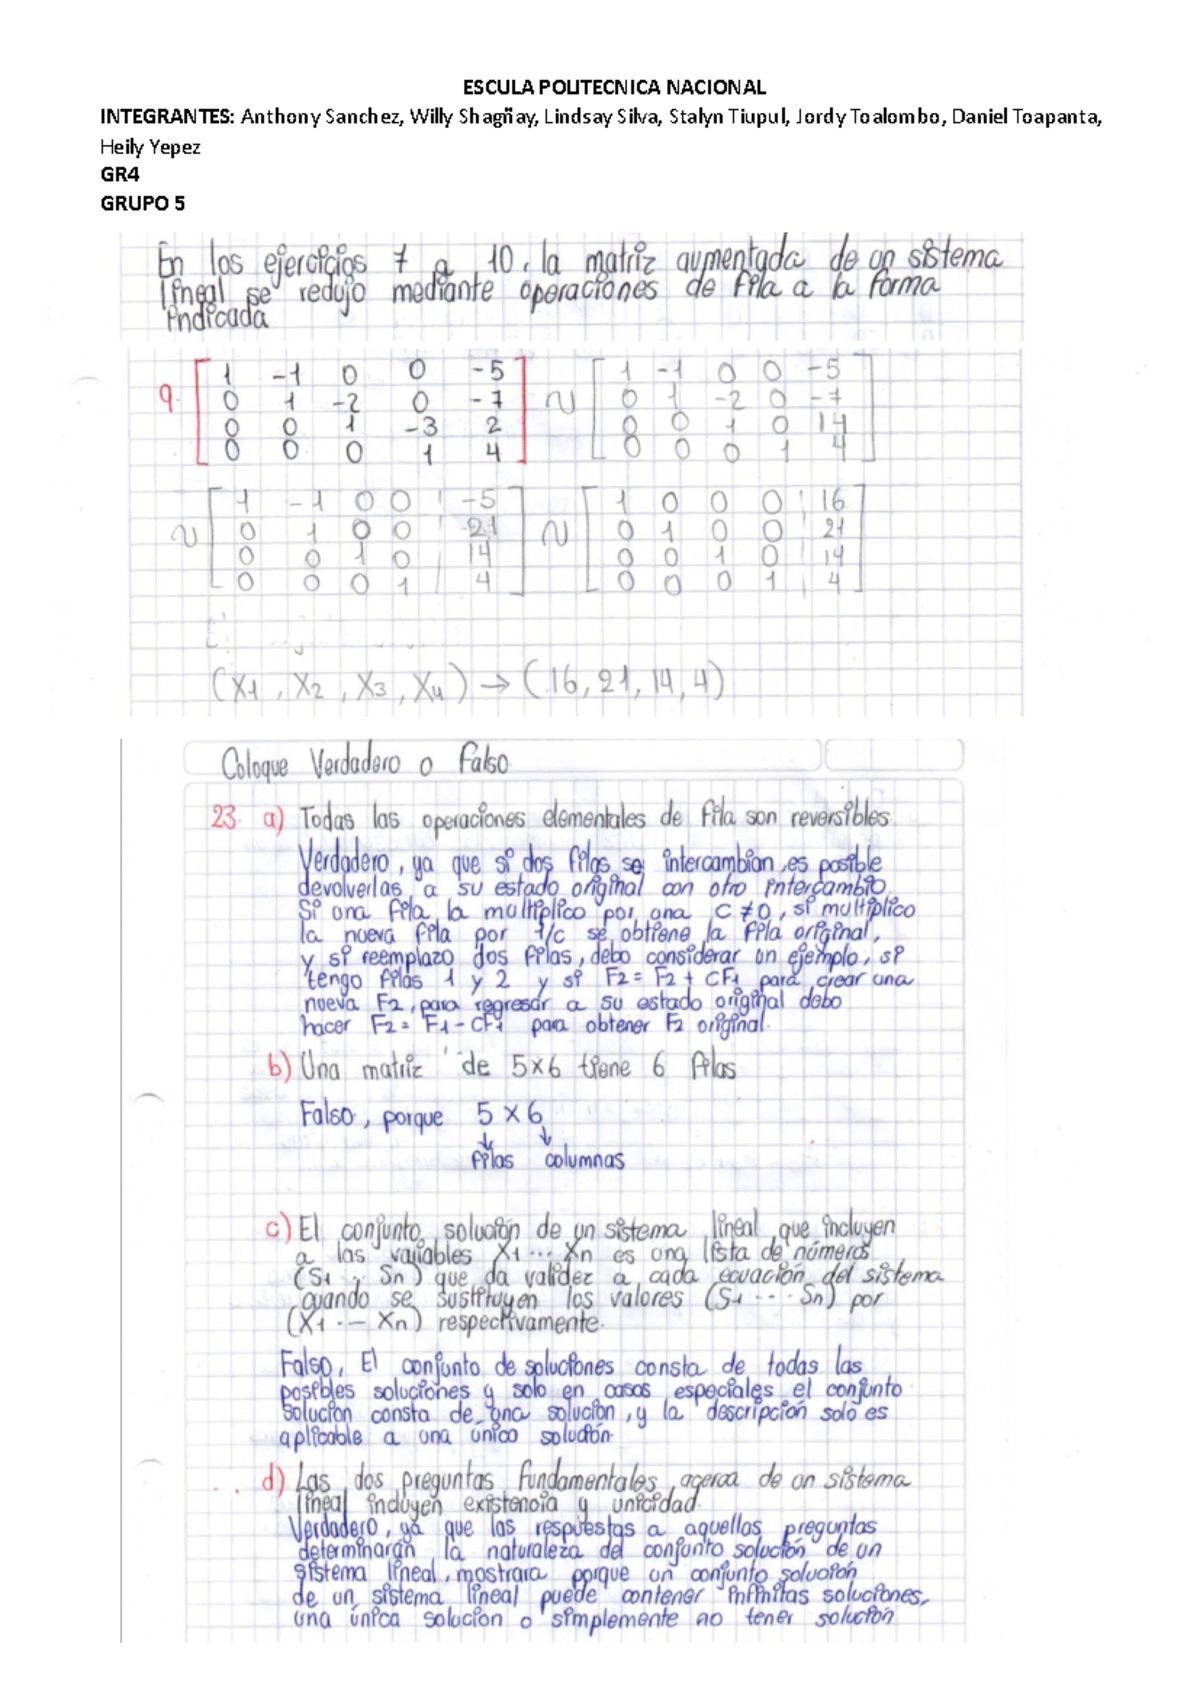 ESCULA POLITECNICA NACIONAL
INTEGRANTES: Anthony Sanchez, Willy Shagñay, Lindsay Silva, Stalyn Tiupul, Jordy Toalombo, Daniel Toapanta,
Heily Yepez
GR4
GRUPO 5
En los ejercicios 7 a 10, la matriz aumentada de un sistema
lineal se redujo mediante operaciones de fila a la forma
indicada
9. [ 1 -1 0 0 -5 ] ~ [ 1 -1 0 0 -5 ]
0 1 -2 0 -7 0 1 -2 0 -7
0 0 1 -3 2 0 0 1 0 14
0 0 0 1 4 0 0 0 1 4
~ [ 1 -1 0 0 | -5 ] ~ [ 1 0 0 0 | 16 ]
0 1 0 0 | 21 0 1 0 0 | 21
0 0 1 0 | 14 0 0 1 0 | 14
0 0 0 1 | 4 0 0 0 1 | 4
(X1, X2, X3, X4) → (16, 21, 14, 4)
Coloque Verdadero o Falso
23. a) Todas las operaciones elementales de fila son reversibles
Verdadero, ya que si dos filas se intercambian, es posible
devolverlas a su estado original con otro intercambio
Si una fila la multiplico por una C ≠ 0, si multiplico
la nueva fila por 1/c se obtiene la fila original,
y si reemplazo dos filas, debo considerar un ejemplo, si
tengo filas 1 y 2 y si F2 = F2 + CF1 para crear una
nueva F2, para regresar a su estado original debo
hacer F2 = F1 - CF1 para obtener F2 original.
b) Una matriz de 5x6 tiene 6 filas
Falso, porque 5 x 6
↓ ↓
filas columnas
c) El conjunto solución de un sistema lineal que incluyen
a las variables X1 ... Xn es una lista de números
(S1 ... Sn) que da validez a cada ecuación del sistema
cuando se sustituyen los valores (S1 ... Sn) por
(X1 ... Xn) respectivamente.
Falso, El conjunto de soluciones consta de todas las
posibles soluciones y solo en casos especiales el conjunto
solucion consta de una solucion, y la descripción solo es
aplicable a una único solución.
d) Las dos preguntas fundamentales acerca de un sistema
lineal incluyen existencia y unicidad.
Verdadero, ya que las respuestas a aquellas preguntas
determinarán la naturaleza del conjunto solución de un
sistema lineal, mostrara porque un conjunto solución
de un sistema lineal puede contener infinitas soluciones,
una única solucion o simplemente no tener solución